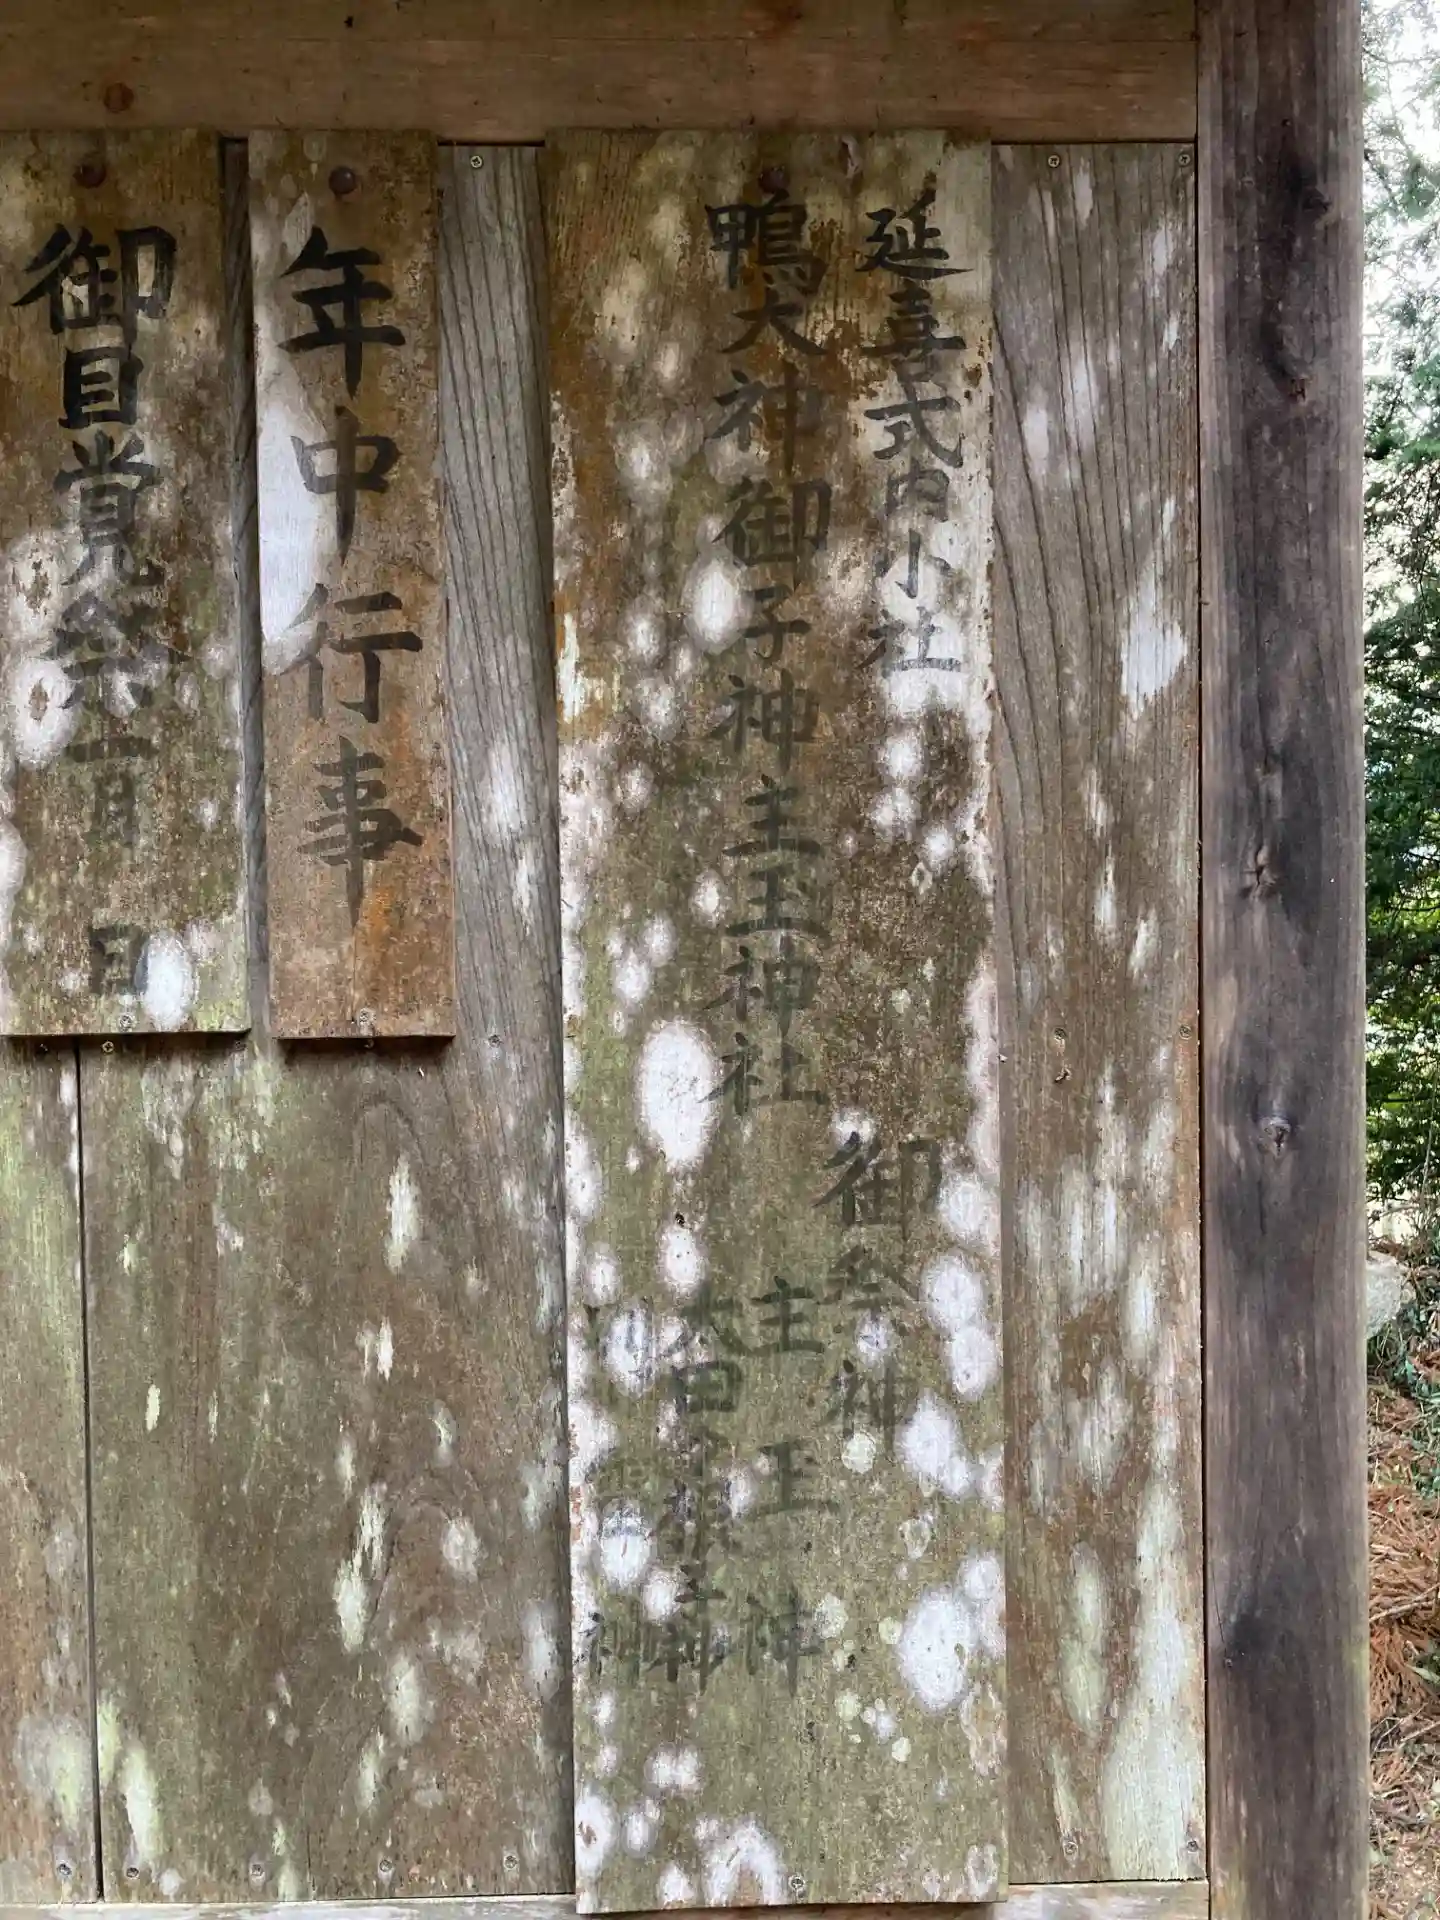 延喜式内小社
鴨大神御子神主玉神社
御祭神
主玉神
大田田根子神
神
年中行事
御目覚祭 一月 日